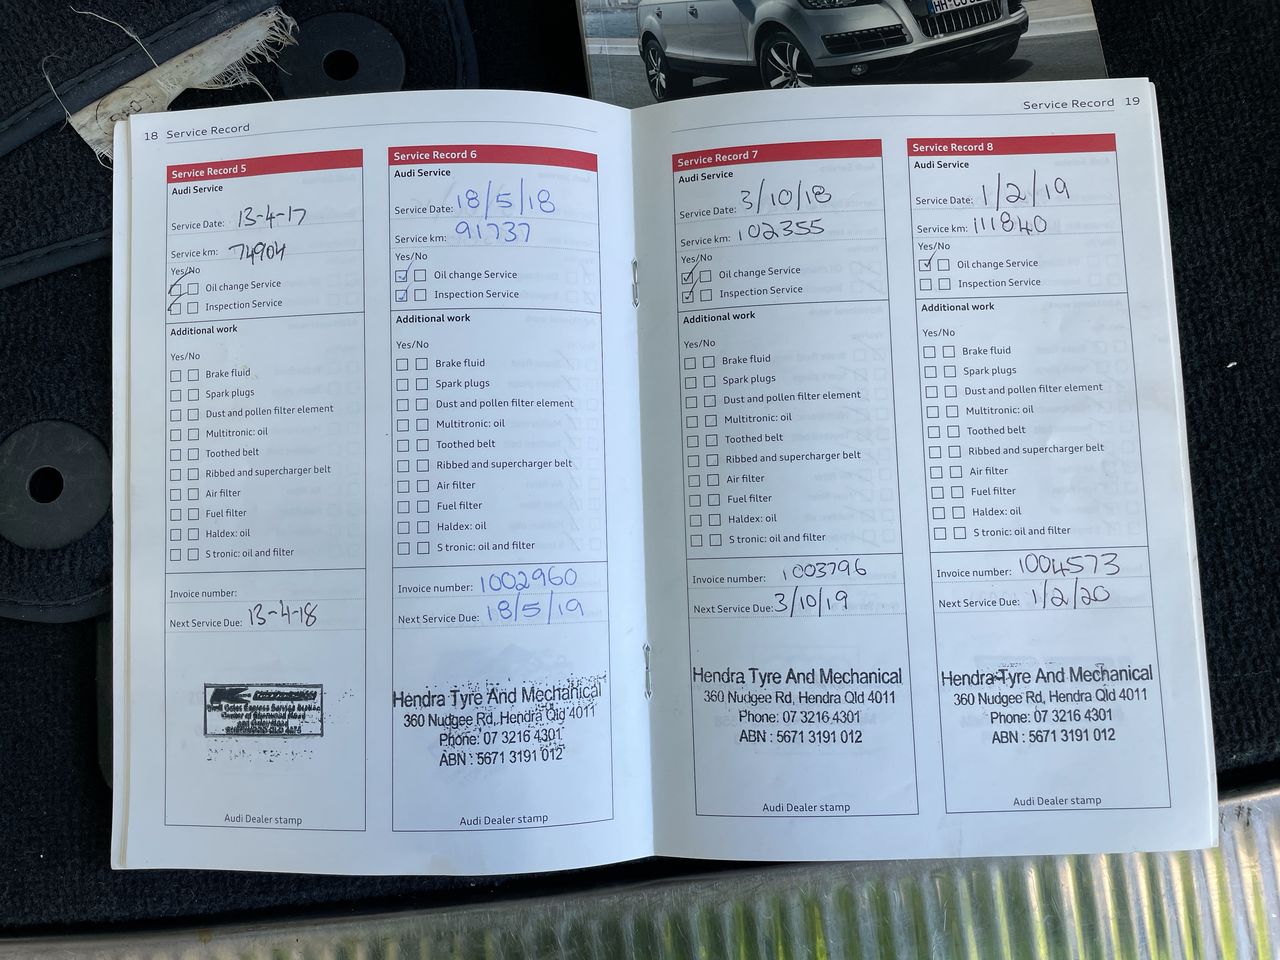 18 Service Record
Service Record 5
Audi Service
Service Date: 13-4-17
Service km: 74904
Yes/No
Oil change Service
Inspection Service
Additional work
Yes/No
Brake fluid
Spark plugs
Dust and pollen filter element
Multitronic: oil
Toothed belt
Ribbed and supercharger belt
Air filter
Fuel filter
Haldex: oil
S tronic: oil and filter
Invoice number:
Next Service Due: 13-4-18
Audi Dealer stamp
Service Record 6
Audi Service
Service Date: 18/5/18
Service km: 91737
Yes/No
Oil change Service
Inspection Service
Additional work
Yes/No
Brake fluid
Spark plugs
Dust and pollen filter element
Multitronic: oil
Toothed belt
Ribbed and supercharger belt
Air filter
Fuel filter
Haldex: oil
S tronic: oil and filter
Invoice number: 1002960
Next Service Due: 18/5/19
Hendra Tyre And Mechanical
360 Nudgee Rd, Hendra Qld 4011
Phone: 07 3216 4301
ABN : 5671 3191 012
Audi Dealer stamp
Service Record 19
Service Record 7
Audi Service
Service Date: 3/10/18
Service km: 102355
Yes/No
Oil change Service
Inspection Service
Additional work
Yes/No
Brake fluid
Spark plugs
Dust and pollen filter element
Multitronic: oil
Toothed belt
Ribbed and supercharger belt
Air filter
Fuel filter
Haldex: oil
S tronic: oil and filter
Invoice number: 1003796
Next Service Due: 3/10/19
Hendra Tyre And Mechanical
360 Nudgee Rd, Hendra Qld 4011
Phone: 07 3216 4301
ABN : 5671 3191 012
Audi Dealer stamp
Service Record 8
Audi Service
Service Date: 1/2/19
Service km: 111840
Yes/No
Oil change Service
Inspection Service
Additional work
Yes/No
Brake fluid
Spark plugs
Dust and pollen filter element
Multitronic: oil
Toothed belt
Ribbed and supercharger belt
Air filter
Fuel filter
Haldex: oil
S tronic: oil and filter
Invoice number: 1004573
Next Service Due: 1/2/20
Hendra Tyre And Mechanical
360 Nudgee Rd, Hendra Qld 4011
Phone: 07 3216 4301
ABN : 5671 3191 012
Audi Dealer stamp